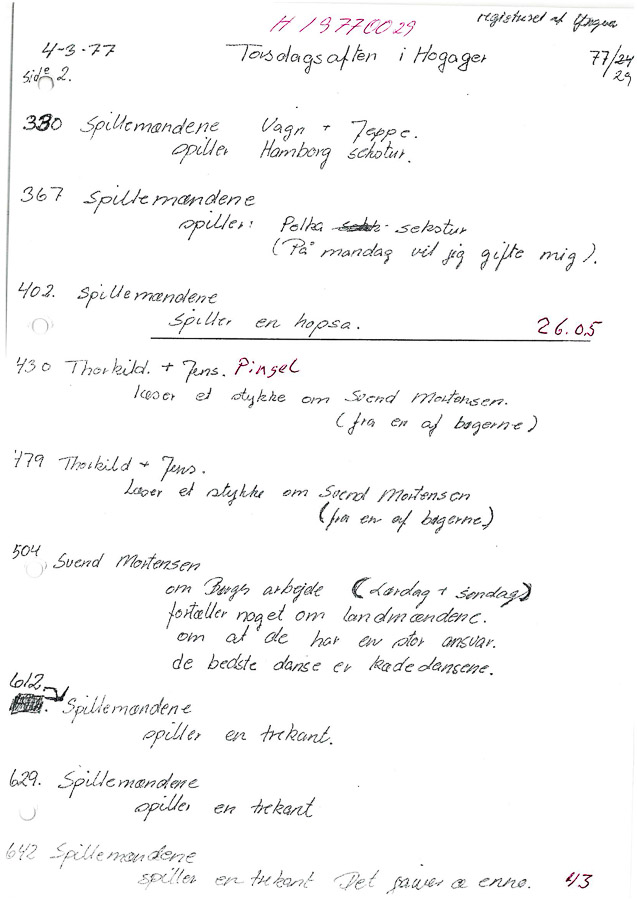 H 1977CC029 registreret af Yngva
4-3-77 Torsdagsaften i Hogager 77/24
side 2. 29
380 Spillemændene Vagn + Jeppe.
spiller Hamborg sekstur.
367 Spillemændene
spiller: Polka sekstur
(På mandag vil jig gifte mig).
402. Spillemændene
spiller en hopsa. 26.05
430 Thorkild. + Jens. Pingel
læser et stykke om Svend Mortensen.
(fra en af bøgerne)
479 Thorkild + Jens.
Læser et stykke om Svend Mortensen
(fra en af bøgerne)
504 Svend Mortensen
om arbejde (Lørdag + søndag)
fortæller noget om landmændene.
om at de har en stor ansvar.
de bedste danse er kædedansene.
612.
Spillemændene
spiller en trekant.
629. Spillemændene
spiller en trekant
642 Spillemændene
spiller en trekant Det gawer æ enno. 43